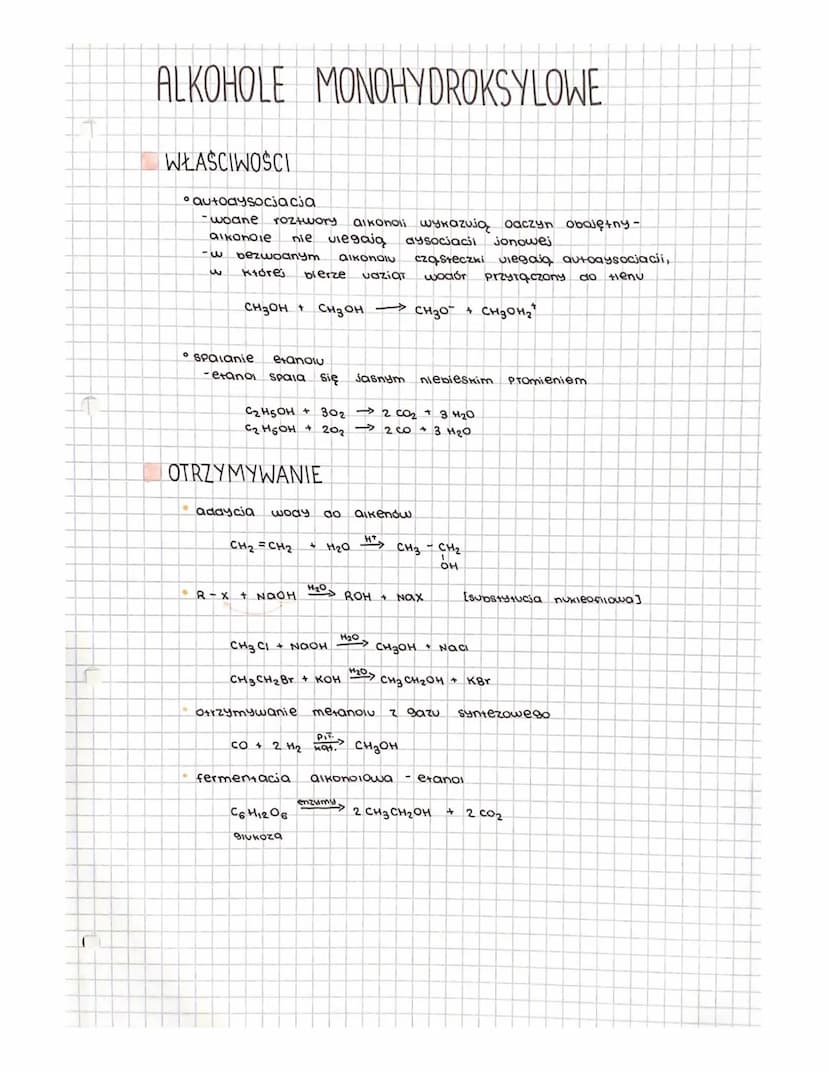 ALKOHOLE MONOHYDROKSYLOWE
WŁAŚCIWOŚCI
° autodysocjacja
- wodne roztwory alkoholi wykazują odczyn obojętny -
alkohole nie ulegają dysocjacji jonowej
- w bezwodnym alkoholu cząsteczki ulegają autodysocjacji,
w której bierze udział wodór przyłączony do tlenu
CH₃OH + CH₃OH → CH₃O⁻ + CH₃OH₂⁺
° spalanie etanolu
- etanol spala się jasnym niebieskim płomieniem
C₂H₅OH + 3O₂ → 2 CO₂ + 3 H₂O
C₂H₅OH + 2O₂ → 2 CO + 3 H₂O
OTRZYMYWANIE
• addycja wody do alkenów
CH₂ = CH₂ + H₂O –H⁺→ CH₃ - CH₂
OH
• R - X + NaOH –H₂O→ ROH + NaX [substytucja nukleofilowa]
CH₃Cl + NaOH –H₂O→ CH₃OH + NaCl
CH₃CH₂Br + KOH –H₂O→ CH₃CH₂OH + KBr
• otrzymywanie metanolu z gazu syntezowego
CO + 2 H₂ –p,T. kat.→ CH₃OH
• fermentacja alkoholowa - etanol
C₆H₁₂O₆ –enzymy→ 2 CH₃CH₂OH + 2 CO₂
glukoza